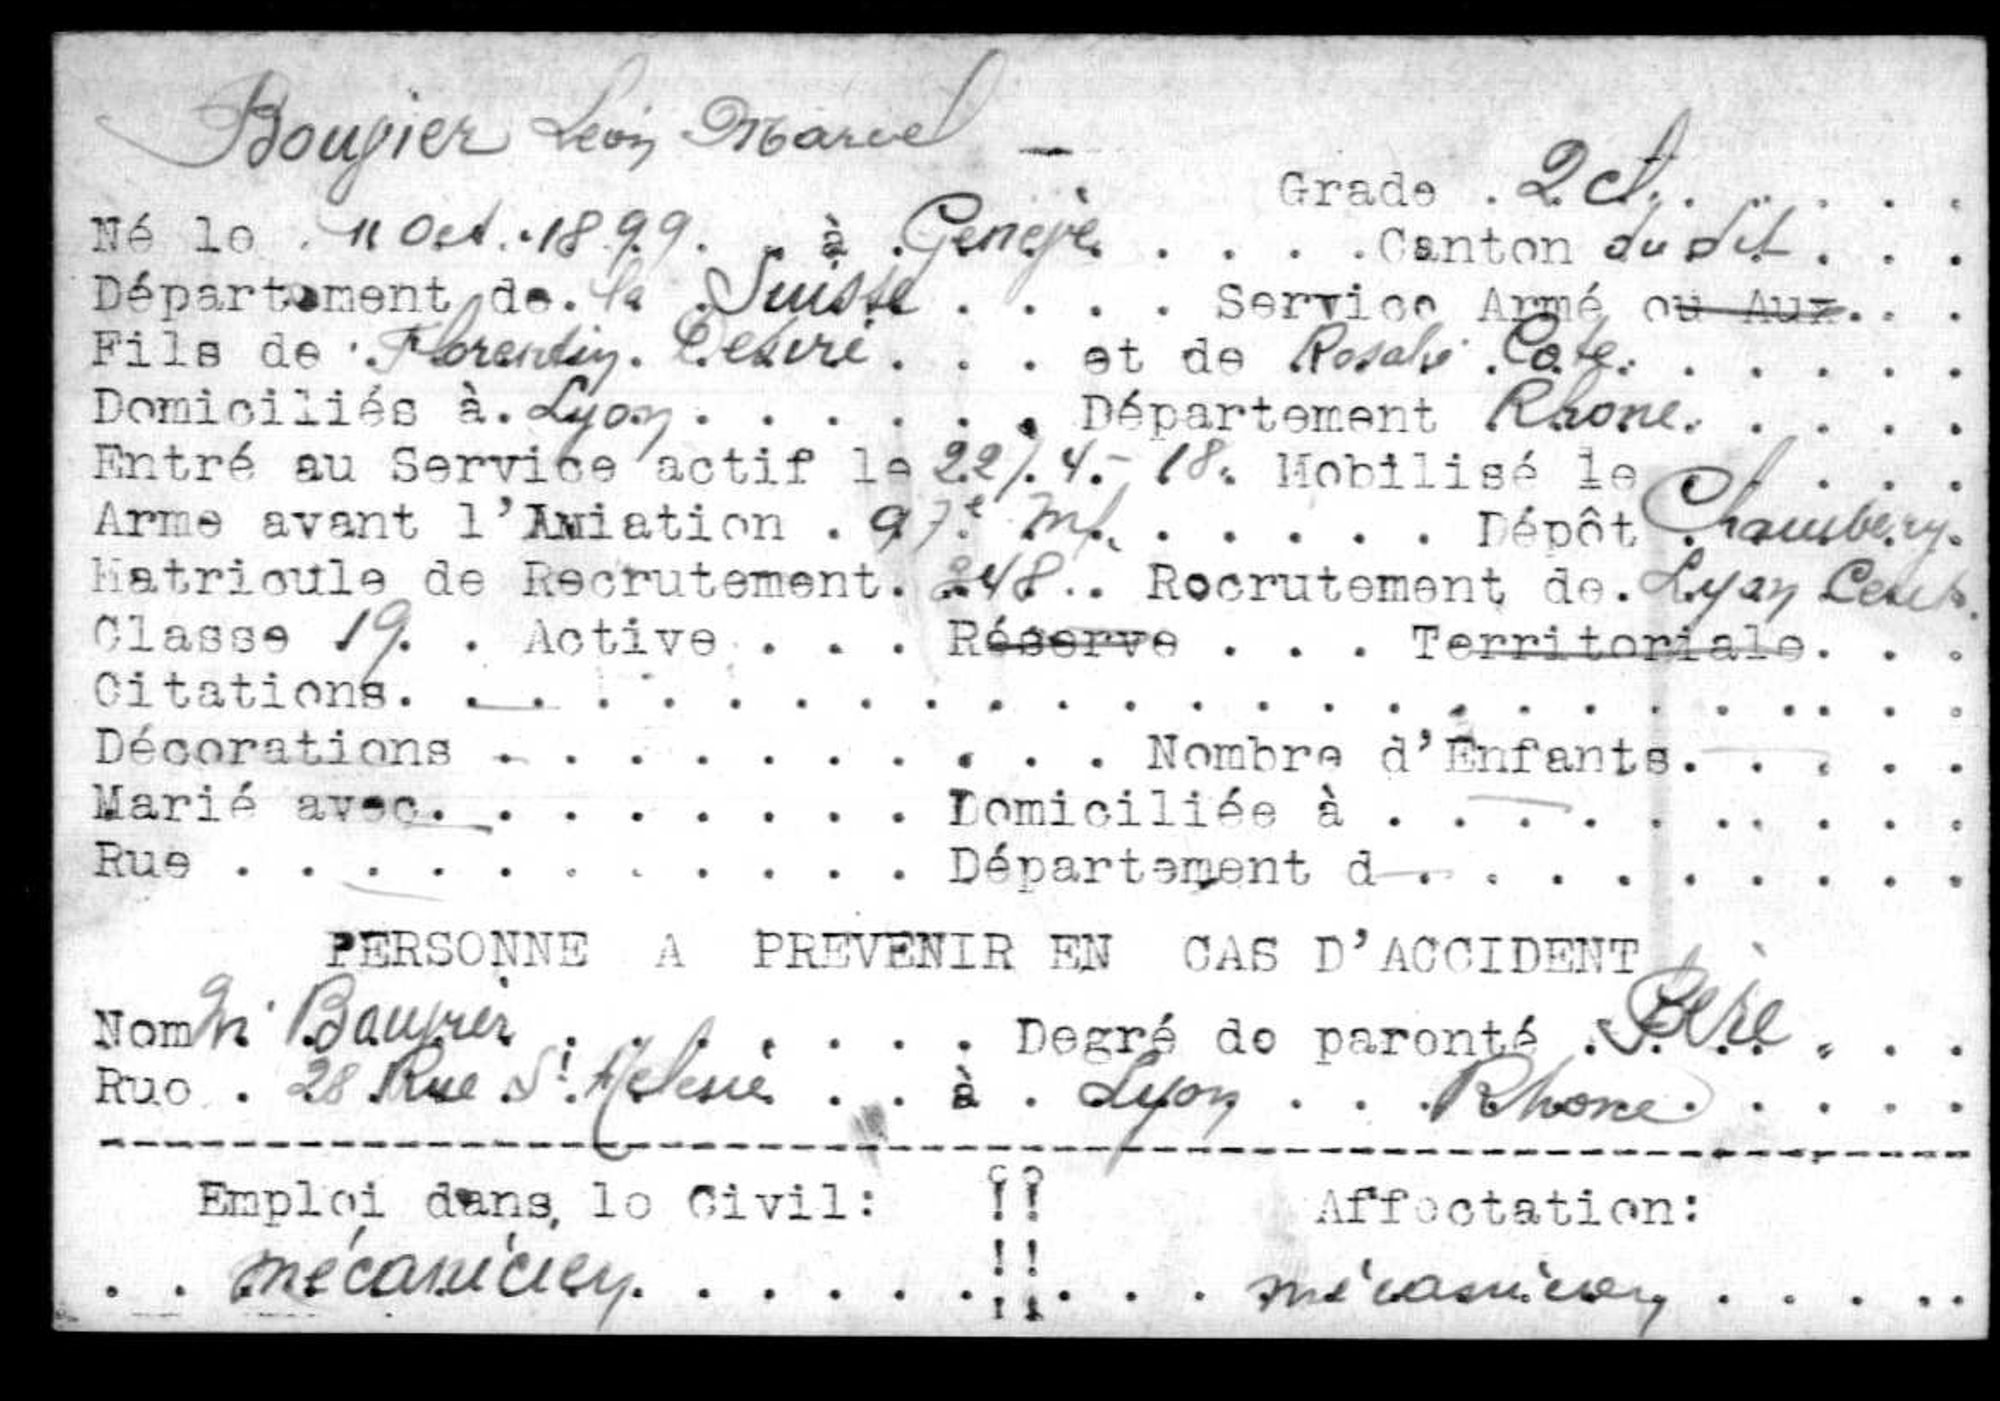 Bougier Léon Marcel —
Grade . 2 cl. . . . . .
Né le . 11 Oct. 1899. . à . Genève . . . . Canton du dit . . .
Département de. la Suisse . . . . Service Armé ou Aux. . .
Fils de . Florentin. Désiré . . . et de Rosalie Cote. . . . . .
Domiciliés à. Lyon . . . . . . Département Rhone. . . . .
Entré au Service actif le 22. 4. - 18. Mobilisé le . . . .
Arme avant l'Aviation . 97e Inf. . . . . . Dépôt Chambery.
Matricule de Recrutement. 248 . . Recrutement de. Lyon Cent.
Classe 19. . Active . . . Réserve . . . Territoriale. . .
Citations. . . . . . . . . . . . . . . . . . . . . . . .
Décorations . . . . . . . . . . Nombre d'Enfants. . . . .
Marié avec. . . . . . . . Domiciliée à . . . . . . . . .
Rue . . . . . . . . . . . Département d . . . . . . . . .
PERSONNE A PREVENIR EN CAS D'ACCIDENT
Nom Mr Bougier . . . . . . . Degré de parenté . Père . . .
Rue . 28 Rue St. . . . à . Lyon . . . Rhone . . . . .
Emploi dans le Civil: !! Affectation:
. . mécanicien. . . . . . !! . . . mécanicien . . . . .